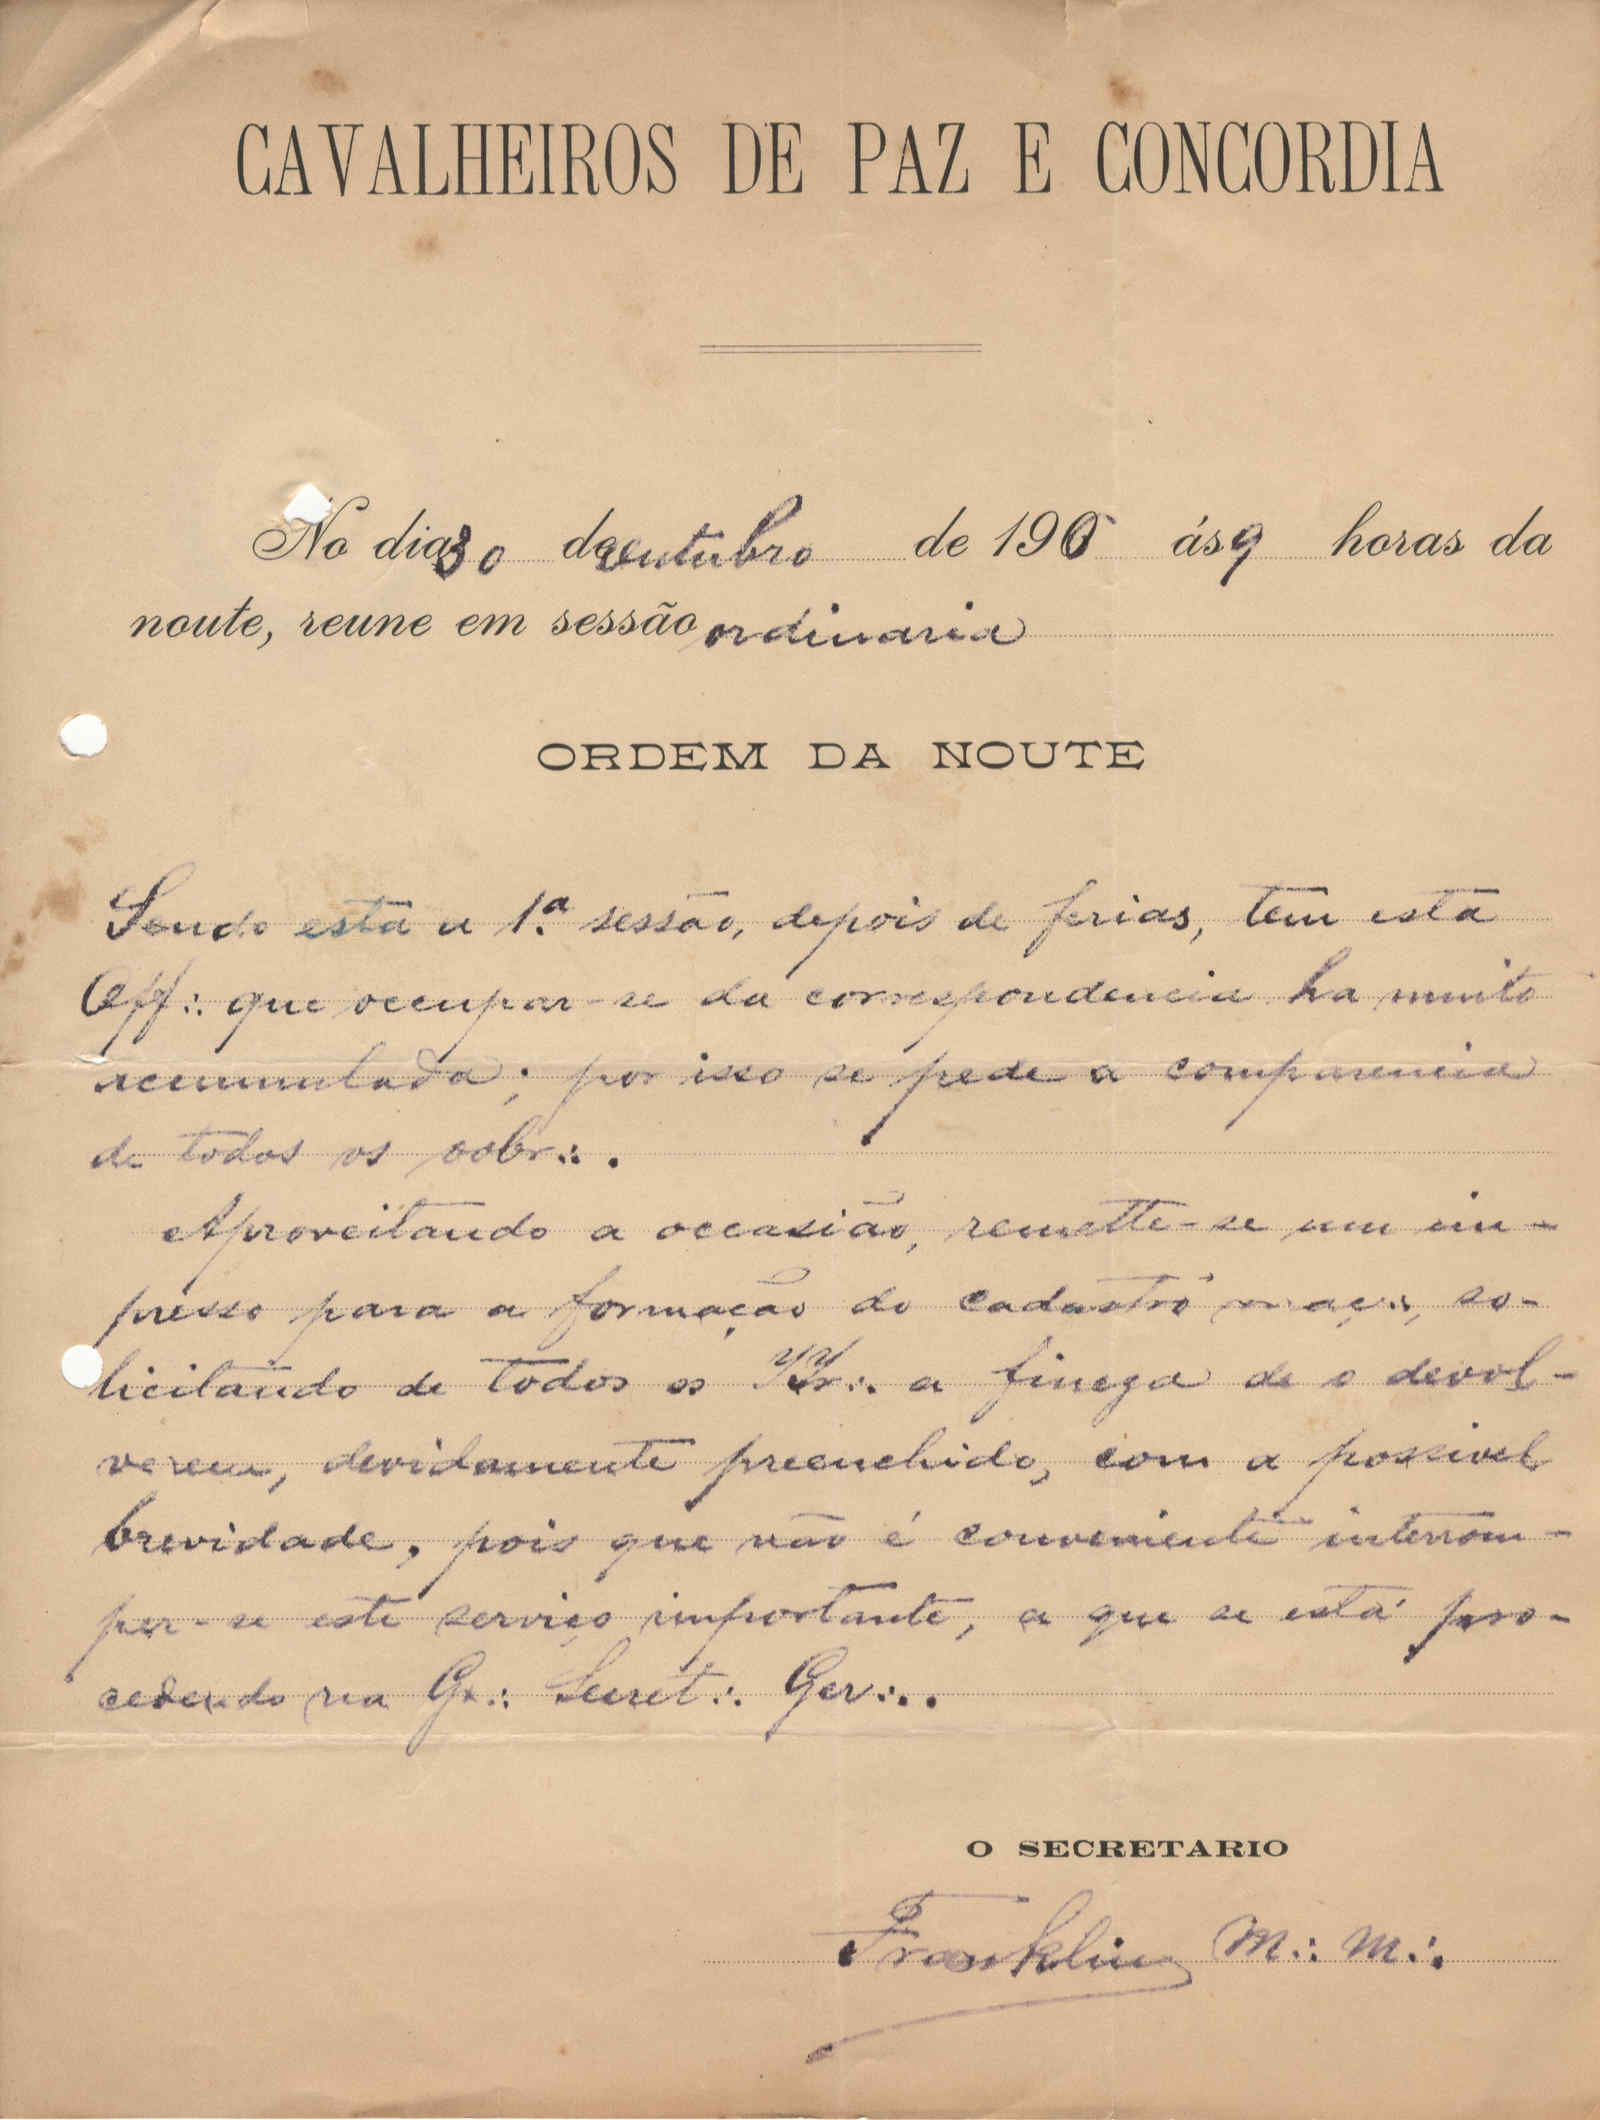 CAVALHEIROS DE PAZ E CONCORDIA
No dia 30 de outubro de 190 ás 9 horas da
noute, reune em sessão ordinaria
ORDEM DA NOUTE
Sendo esta a 1.ª sessão, depois de ferias, tem esta
Off∴ que occupar-se da correspondencia ha muito
accumulada; por isso se pede a comparencia
de todos os oobr∴.
Aproveitando a occasião, remette-se um im-
presso para a formação do cadastro maç∴, so-
licitando de todos os IIr∴ a fineza de o devol-
verem, devidamente preenchido, com a possivel
brevidade, pois que não é conveniente interrom-
per-se este serviço importante, a que se está pro-
cedendo na Gr∴ Secret∴ Ger∴.
O SECRETARIO
Franklin M∴ M∴.